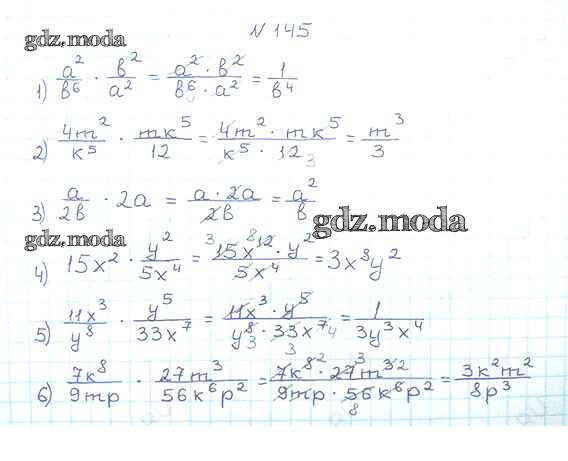 N 145
gdz.moda
1) a²/b⁶ · b²/a² = a² · b²/b⁶ · a² = 1/b⁴
2) 4m²/k⁵ · mk⁵/12 = 4m² · mk⁵/k⁵ · 12 3 = m³/3
3) a/2b · 2a = a · 2a/2b = a²/b
gdz.moda
gdz.moda
4) 15x² · y²/5x⁴ = 3 15x⁸ ¹² · y²/5x⁴ = 3x⁸y²
5) 11x³/y⁸ · y⁵/33x⁷ = 11x³ · y⁵/y⁸ 3 · 33 3 x⁷ 4 = 1/3y³x⁴
6) 7k⁸/9mp · 27m³/56k⁶p² = 7k⁸ ² · 27 3 m³ ²/9mp · 56 8 k⁶p² = 3k²m²/8p³